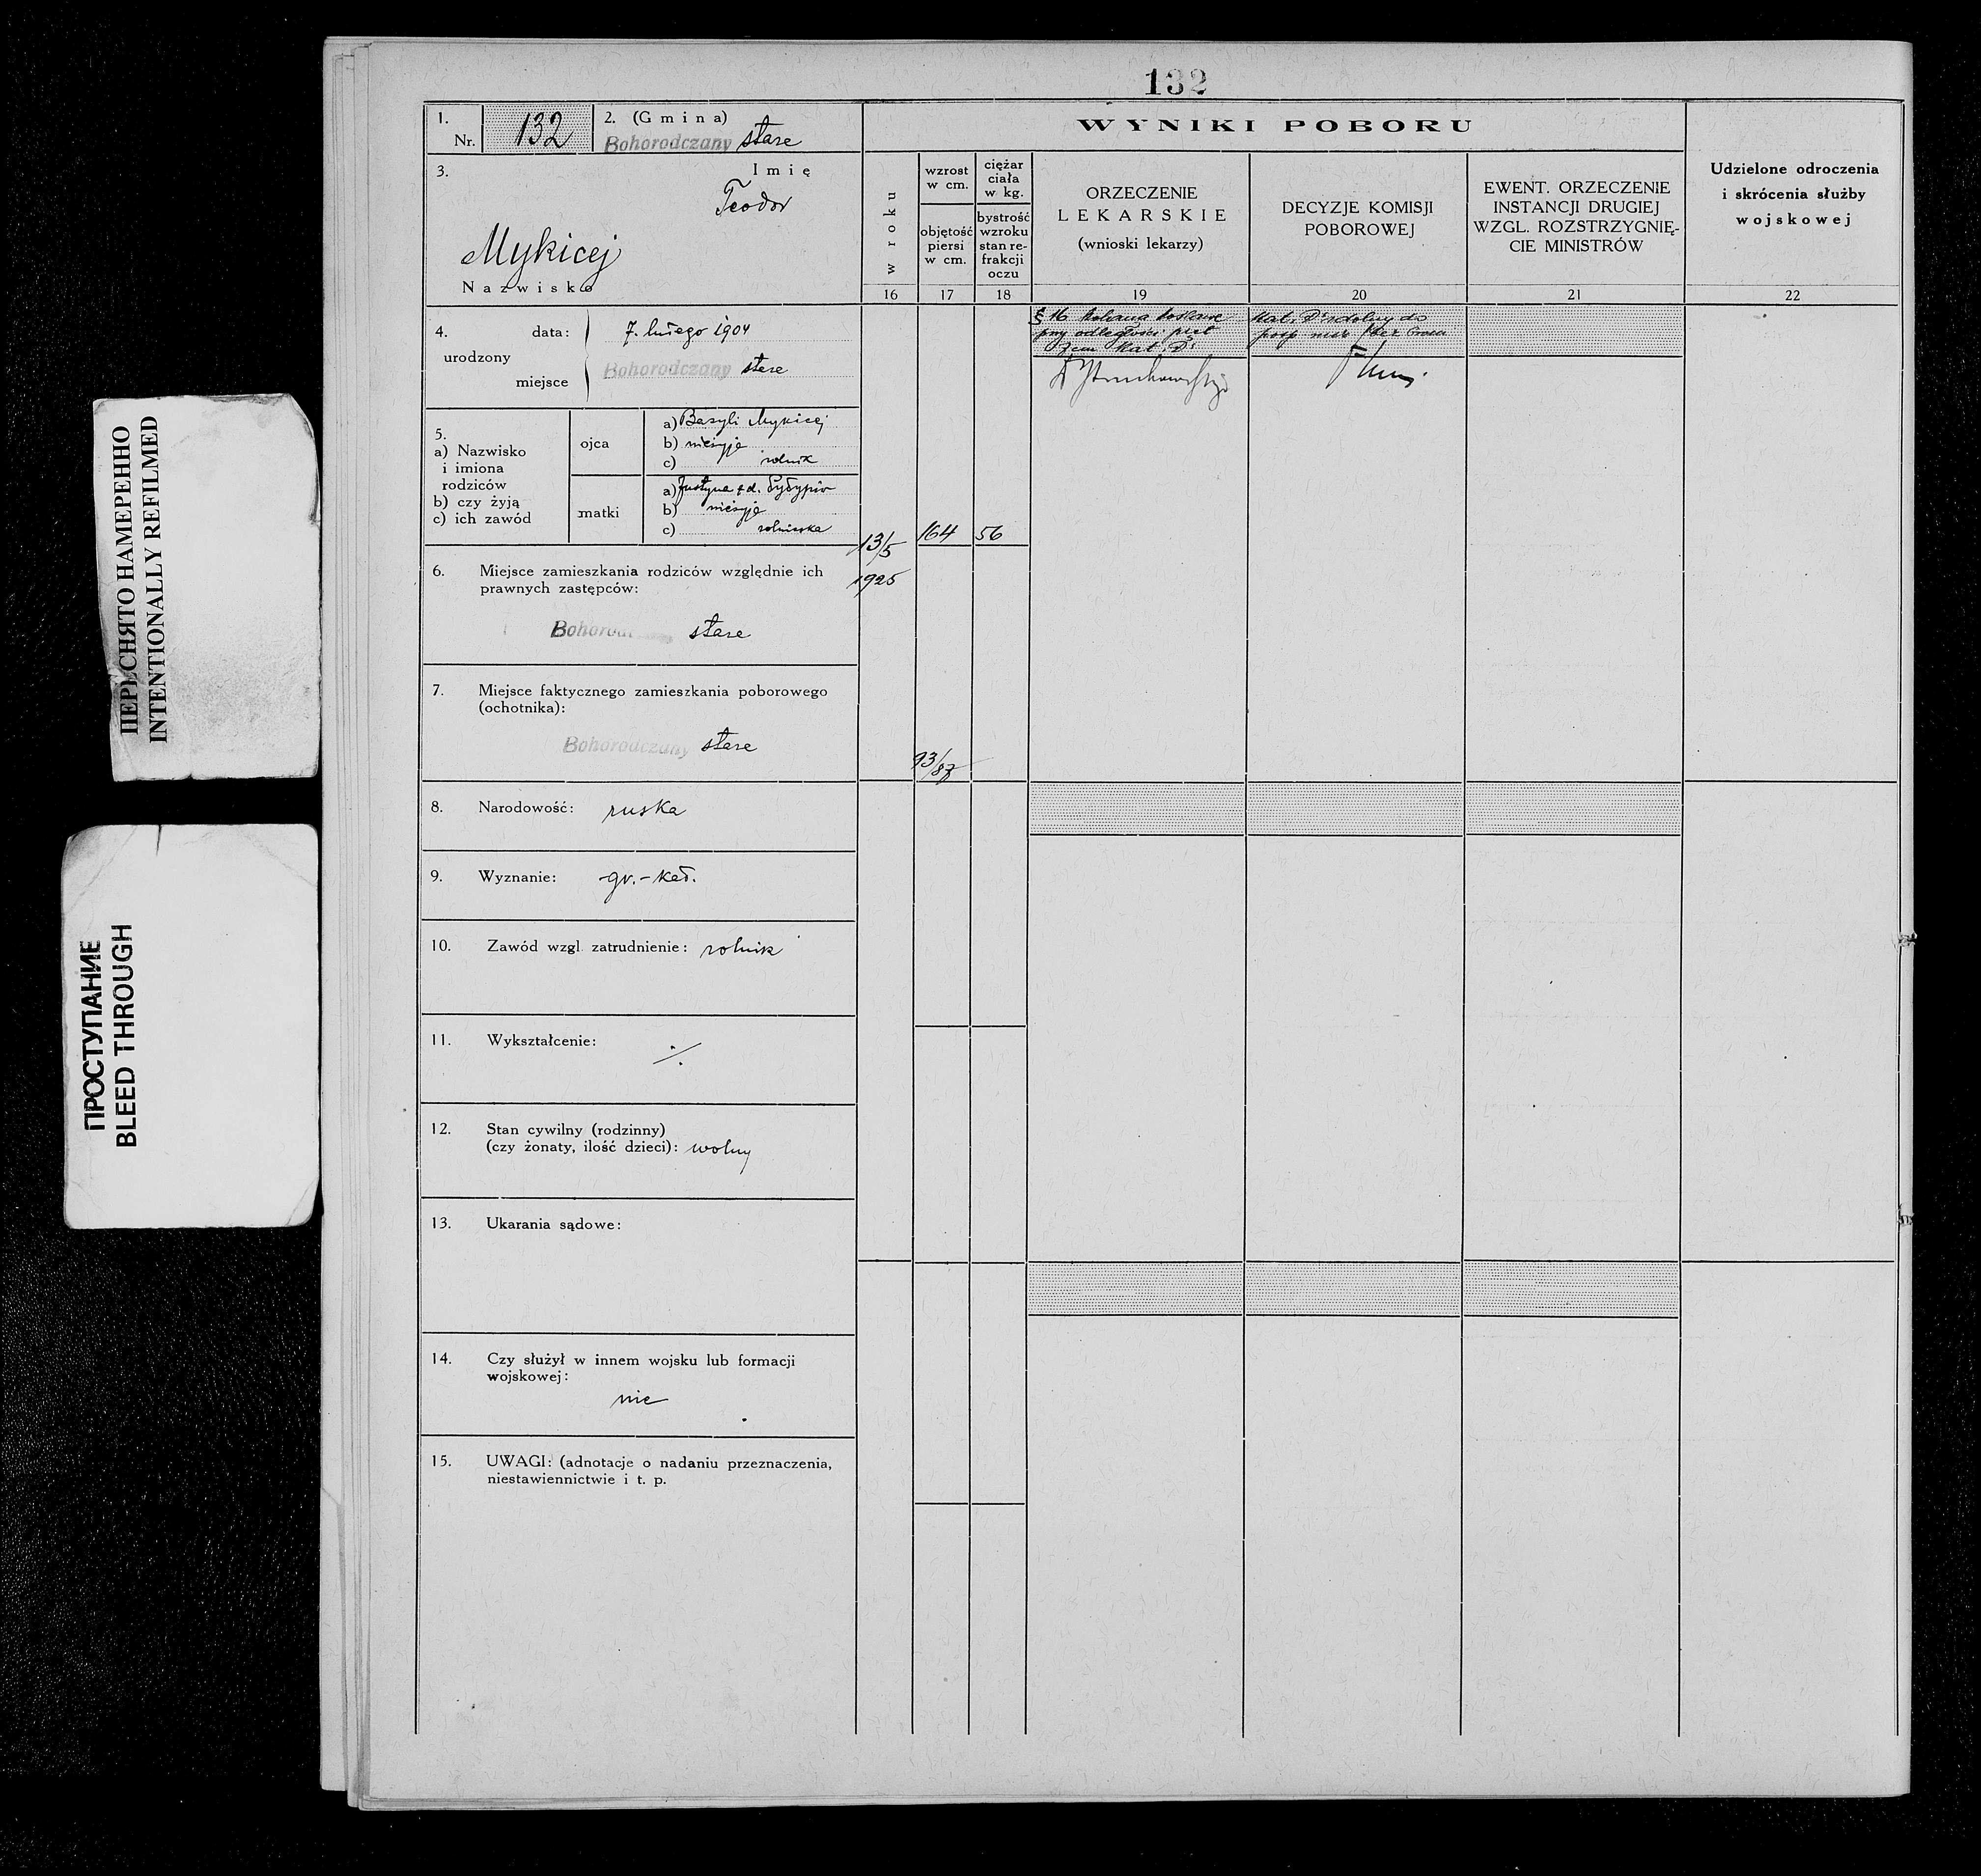 132
1.
Nr. 132
2. (Gmina)
Bohorodczany stare
3. Imię
Teodor
Mykicej
Nazwisko
4. data: 7. lutego 1904
urodzony
miejsce Bohorodczany stare
5.
a) Nazwisko
i imiona
rodziców
b) czy żyją
c) ich zawód
ojca
a) Bazyli Mykicej
b) nieżyje
c) rolnik
matki
a) Justyna
b) nieżyje
c) rolniczka
6. Miejsce zamieszkania rodziców względnie ich
prawnych zastępców:
Bohorod stare
7. Miejsce faktycznego zamieszkania poborowego
(ochotnika):
Bohorodczany stare
8. Narodowość: ruska
9. Wyznanie: gr.-kat.
10. Zawód wzgl. zatrudnienie: rolnik
11. Wykształcenie: ·/.
12. Stan cywilny (rodzinny)
(czy żonaty, ilość dzieci): wolny
13. Ukarania sądowe:
14. Czy służył w innem wojsku lub formacji
wojskowej:
nie
15. UWAGI: (adnotacje o nadaniu przeznaczenia,
niestawiennictwie i t. p.
WYNIKI POBORU
w roku
16
wzrost
w cm.
objętość
piersi
w cm.
17
ciężar
ciała
w kg.
bystrość
wzroku
stan re-
frakcji
oczu
18
ORZECZENIE
LEKARSKIE
(wnioski lekarzy)
19
DECYZJE KOMISJI
POBOROWEJ
20
EWENT. ORZECZENIE
INSTANCJI DRUGIEJ
WZGL. ROZSTRZYGNIĘ-
CIE MINISTRÓW
21
Udzielone odroczenia
i skrócenia służby
wojskowej
22
13/5
1925
164
56
93/87
§ 16 kolana
przy odległości
7 cm Kat. D
Kat. D zdolny do
posp. rusz. bez broni
ПЕРЕСНЯТО НАМЕРЕННО
INTENTIONALLY REFILMED
ПРОСТУПАНИЕ
BLEED THROUGH